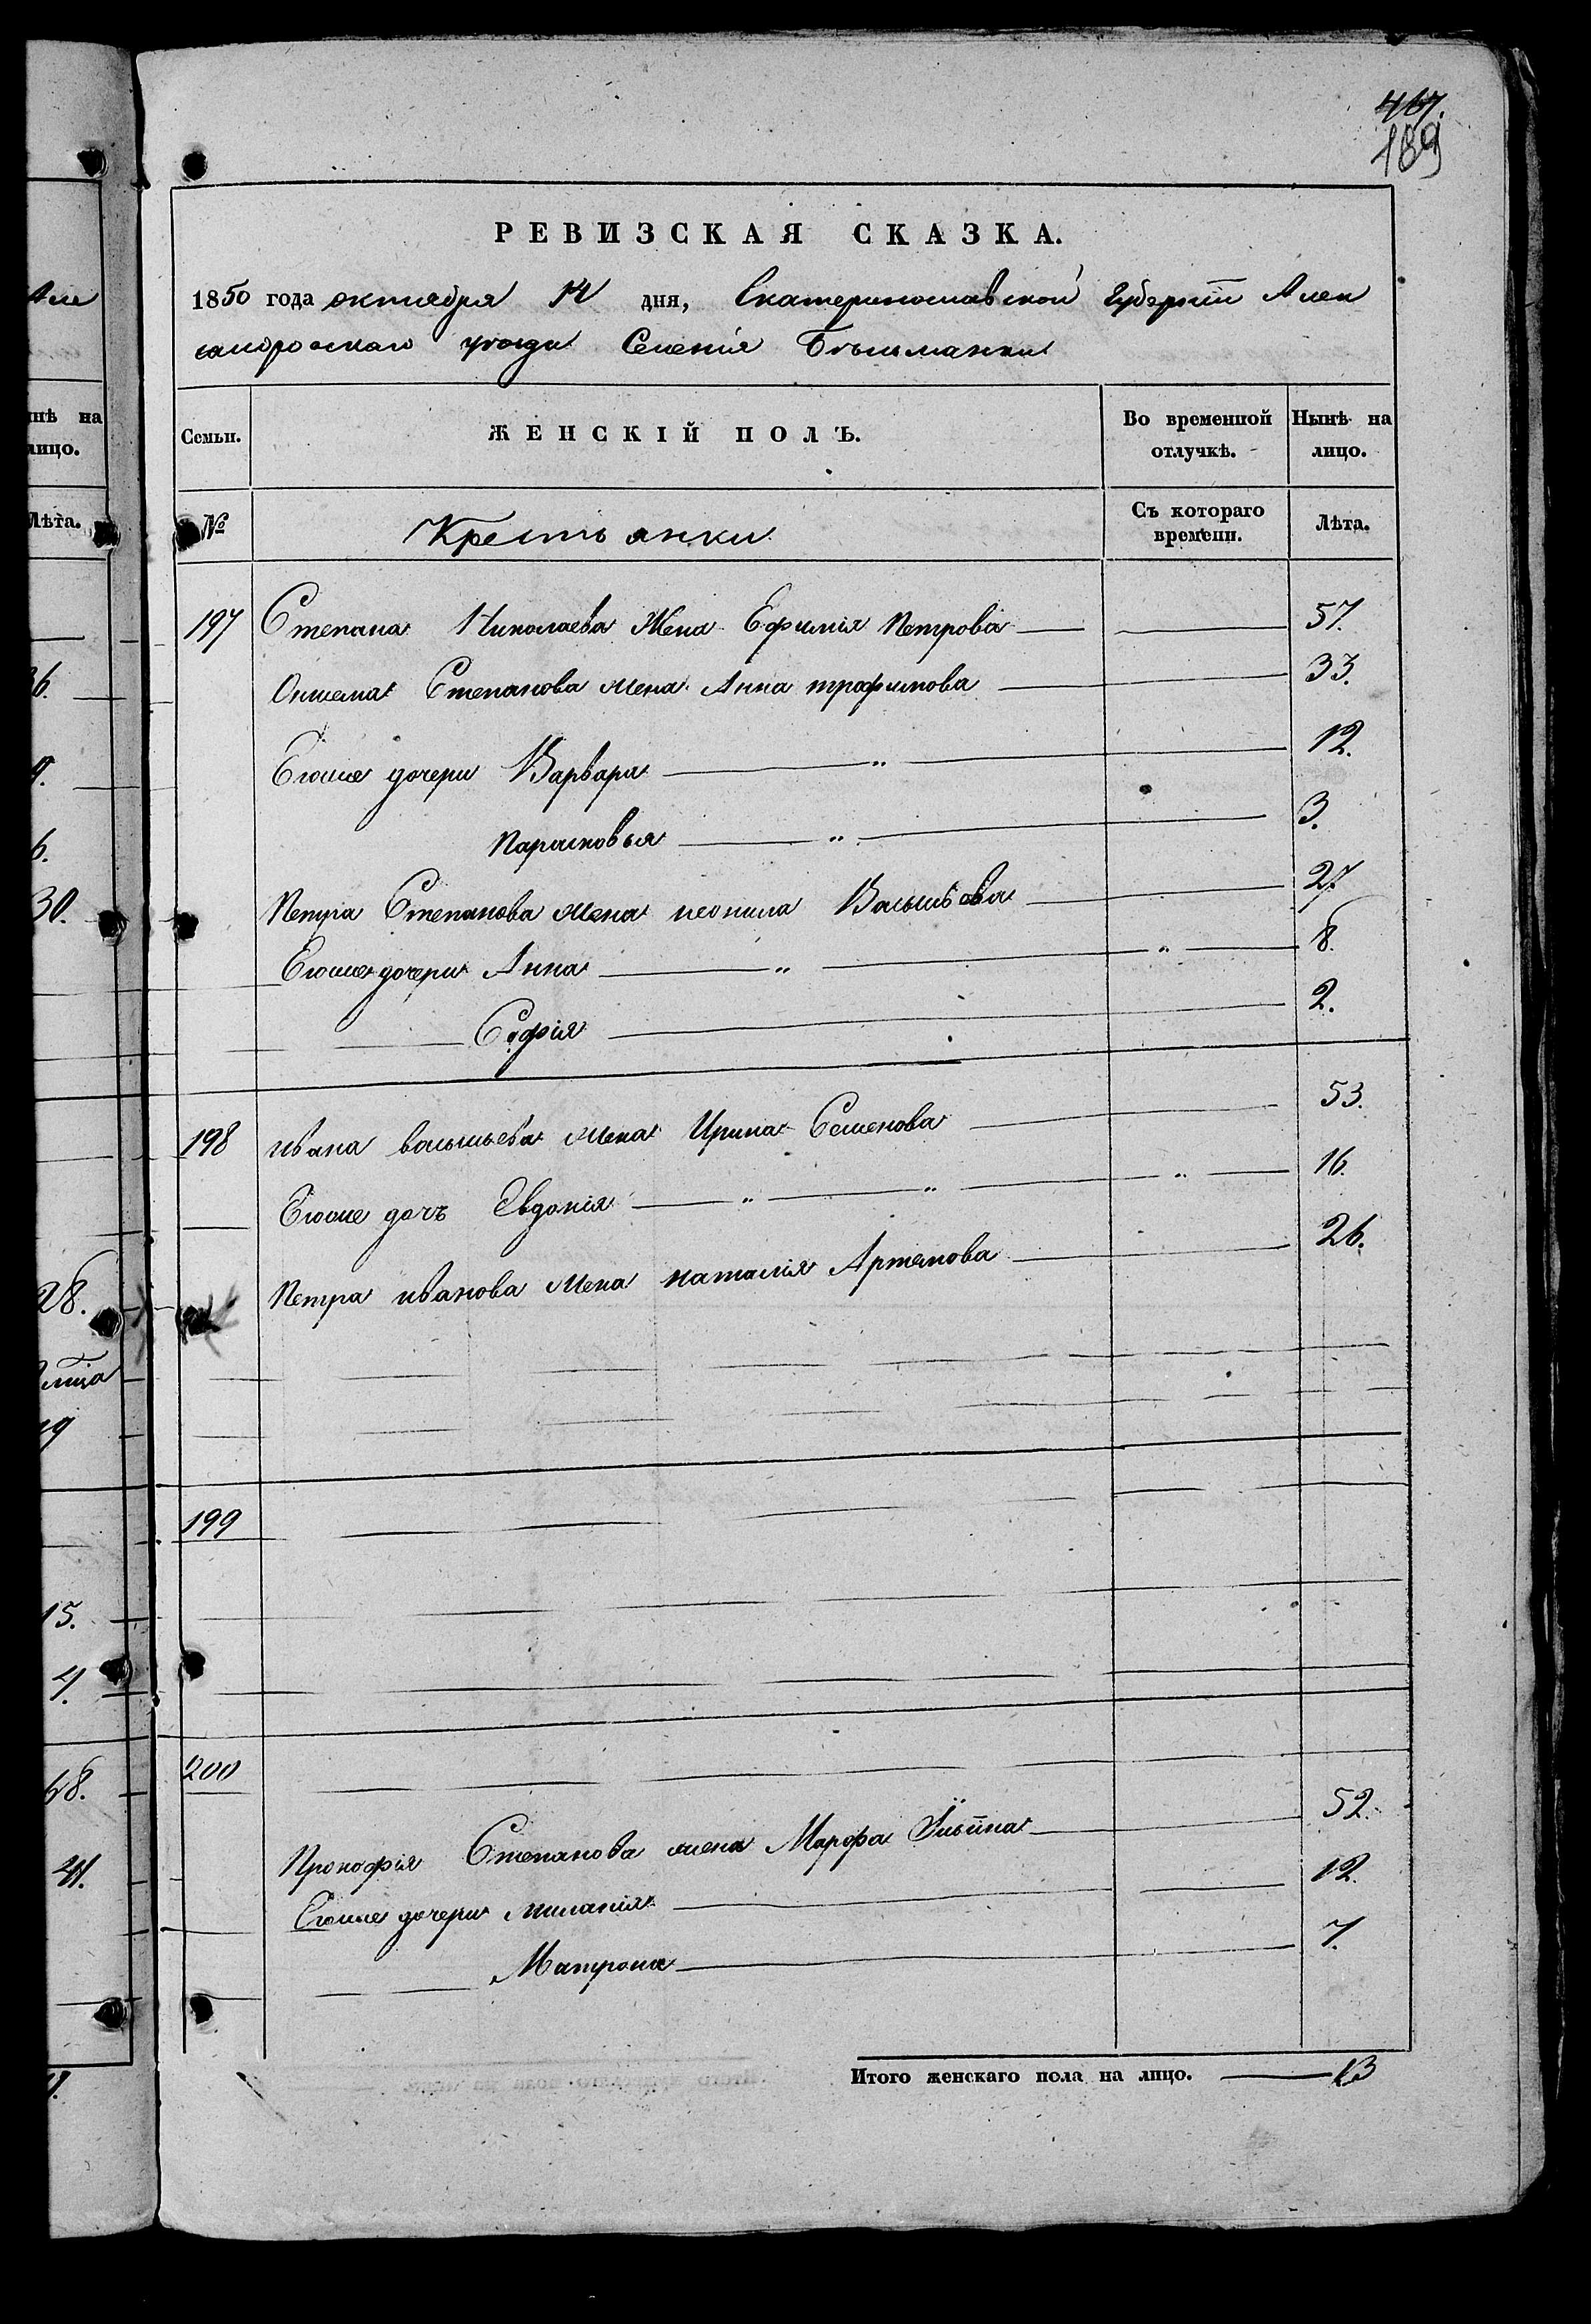 467.
189
РЕВИЗСКАЯ СКАЗКА.
1850 года октября 14 дня, Екатеринославской Губернии Алек
сандровскаго уезда Селенія
Семьи. ЖЕНСКІЙ ПОЛЪ. Во временной отлучкѣ. Нынѣ на лицо.
№ Крестьянки Съ котораго времени. Лѣта.
197 Степана Николаева Жена Ефимія Петрова 57.
Степанова жена Анна трофимова 33.
Егоже дочери Варвара " 12.
Парасковья " 3.
Петра Степанова жена неонила Васильева 27
Егоже дочери Анна " " 8.
Софія 2.
198 Ивана васильева жена Ирина Семенова 53.
Егоже дочь Евдокія " " " 16.
Петра иванова жена наталія Артемова 26.
199
200
Прокофія Степанова жена Марфа Ильина 52.
Егоже дочери миланія 12.
Матрона 7.
Итого женскаго пола на лицо. 13
нѣ на
лицо.
Лѣта.
30.
28.
лица
19
15.
4.
68.
41.